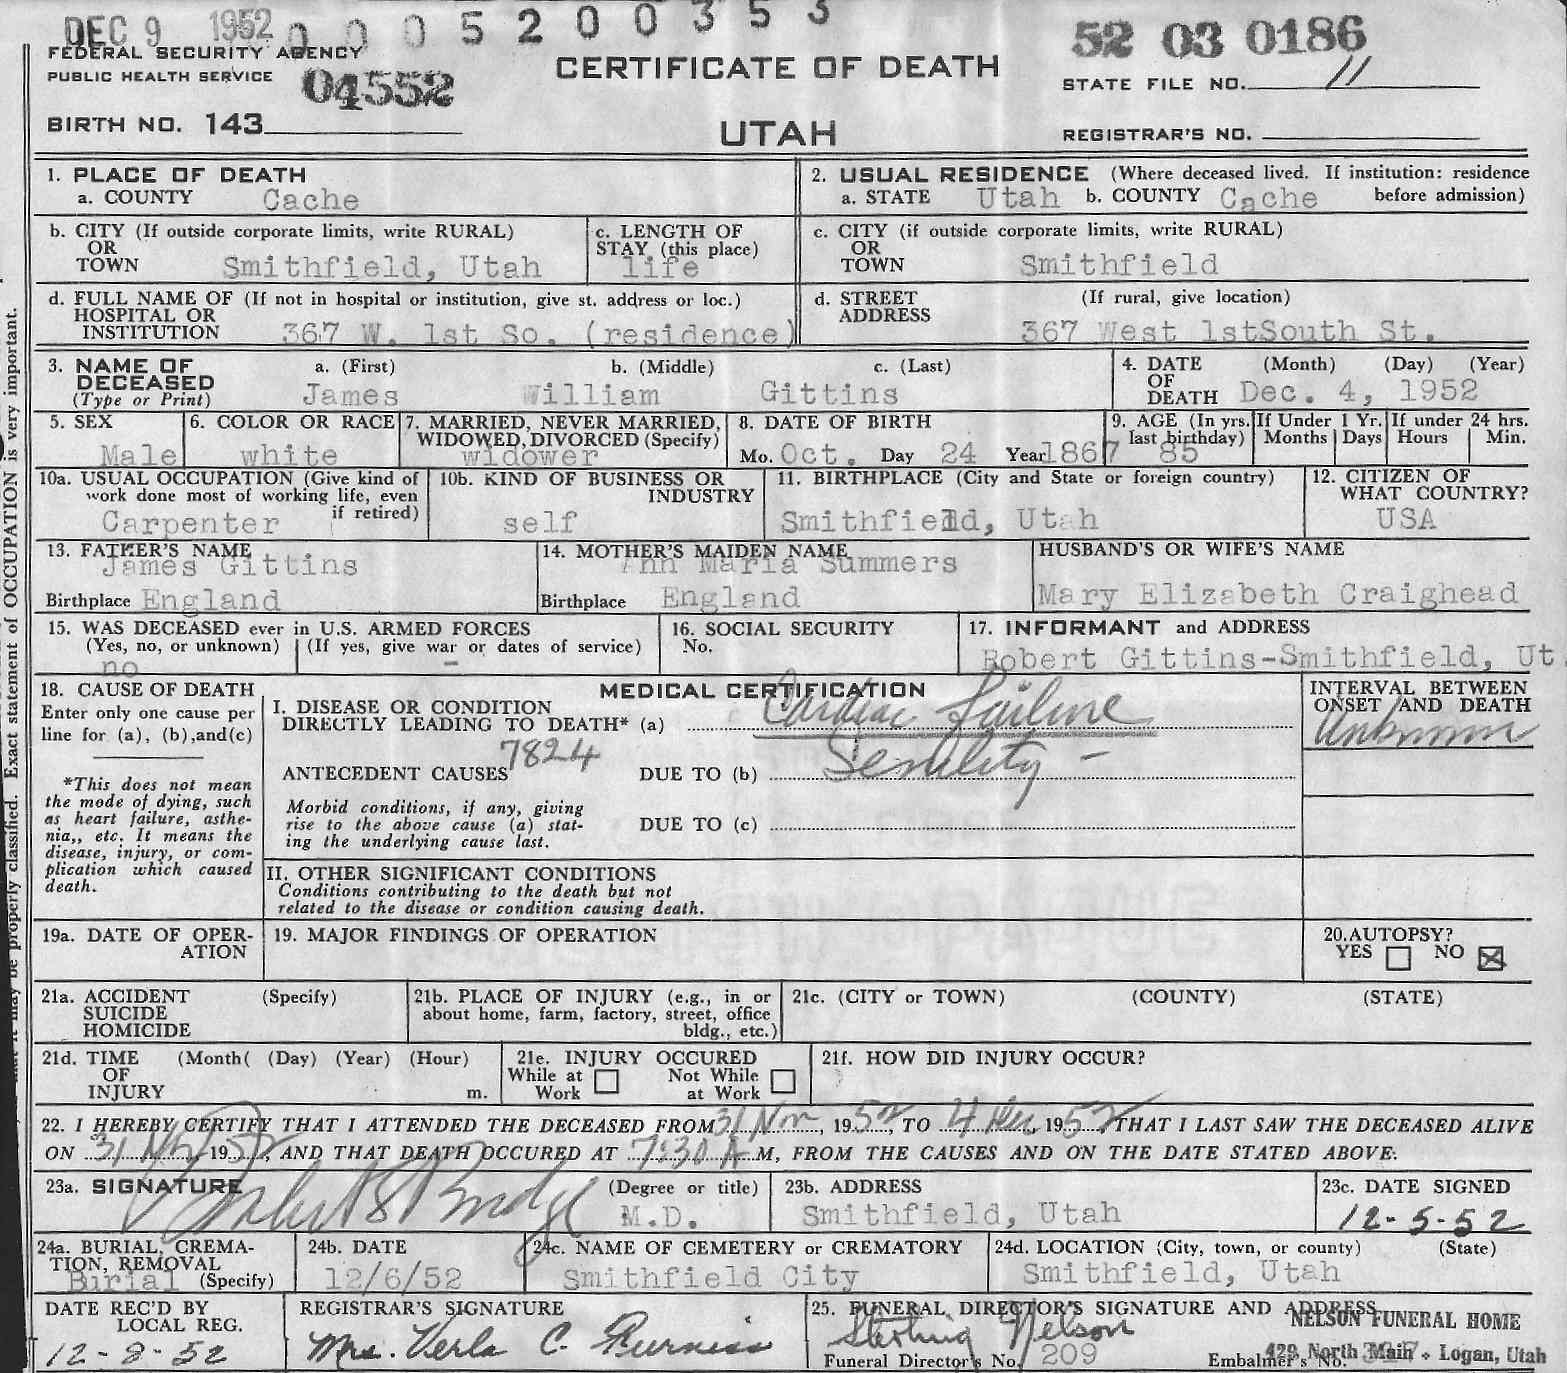 DEC 9 1952 0 0 0 5 2 0 0 3 5 3
52 03 0186
FEDERAL SECURITY AGENCY
PUBLIC HEALTH SERVICE
04552
CERTIFICATE OF DEATH
STATE FILE NO. 11
BIRTH NO. 143
UTAH
REGISTRAR'S NO.
1. PLACE OF DEATH
a. COUNTY Cache
2. USUAL RESIDENCE (Where deceased lived. If institution: residence before admission)
a. STATE Utah b. COUNTY Cache
b. CITY (If outside corporate limits, write RURAL)
OR
TOWN Smithfield, Utah
c. LENGTH OF
STAY (this place)
life
c. CITY (if outside corporate limits, write RURAL)
OR
TOWN Smithfield
d. FULL NAME OF (If not in hospital or institution, give st. address or loc.)
HOSPITAL OR
INSTITUTION 367 W. 1st So. (residence)
d. STREET (If rural, give location)
ADDRESS 367 West 1stSouth St.
3. NAME OF
DECEASED
(Type or Print)
a. (First) b. (Middle) c. (Last)
James William Gittins
4. DATE (Month) (Day) (Year)
OF
DEATH Dec. 4, 1952
5. SEX
Male
6. COLOR OR RACE
white
7. MARRIED, NEVER MARRIED,
WIDOWED, DIVORCED (Specify)
widower
8. DATE OF BIRTH
Mo. Oct. Day 24 Year 1867
9. AGE (In yrs.
last birthday)
85
If Under 1 Yr.
Months Days
If under 24 hrs.
Hours Min.
10a. USUAL OCCUPATION (Give kind of
work done most of working life, even
if retired)
Carpenter
10b. KIND OF BUSINESS OR
INDUSTRY
self
11. BIRTHPLACE (City and State or foreign country)
Smithfield, Utah
12. CITIZEN OF
WHAT COUNTRY?
USA
13. FATHER'S NAME
James Gittins
Birthplace England
14. MOTHER'S MAIDEN NAME
Ann Maria Summers
Birthplace England
HUSBAND'S OR WIFE'S NAME
Mary Elizabeth Craighead
15. WAS DECEASED ever in U.S. ARMED FORCES
(Yes, no, or unknown) (If yes, give war or dates of service)
no -
16. SOCIAL SECURITY
No.
17. INFORMANT and ADDRESS
Robert Gittins-Smithfield, Ut
18. CAUSE OF DEATH
Enter only one cause per
line for (a), (b),and(c)
*This does not mean
the mode of dying, such
as heart failure, asthe-
nia,, etc. It means the
disease, injury, or com-
plication which caused
death.
MEDICAL CERTIFICATION
I. DISEASE OR CONDITION
DIRECTLY LEADING TO DEATH* (a) Cardiac failure
7824
ANTECEDENT CAUSES DUE TO (b) Senility -
Morbid conditions, if any, giving
rise to the above cause (a) stat-
ing the underlying cause last.
DUE TO (c)
INTERVAL BETWEEN
ONSET AND DEATH
Unknown
II. OTHER SIGNIFICANT CONDITIONS
Conditions contributing to the death but not
related to the disease or condition causing death.
19a. DATE OF OPER-
ATION
19. MAJOR FINDINGS OF OPERATION
20. AUTOPSY?
YES NO
21a. ACCIDENT (Specify)
SUICIDE
HOMICIDE
21b. PLACE OF INJURY (e.g., in or
about home, farm, factory, street, office
bldg., etc.)
21c. (CITY or TOWN) (COUNTY) (STATE)
21d. TIME (Month( (Day) (Year) (Hour)
OF
INJURY m.
21e. INJURY OCCURED
While at Work Not While at Work
21f. HOW DID INJURY OCCUR?
22. I HEREBY CERTIFY THAT I ATTENDED THE DECEASED FROM 31 Nov, 1952, TO 4 Dec, 1952 THAT I LAST SAW THE DECEASED ALIVE
ON 31 Nov, 1952, AND THAT DEATH OCCURED AT 7:30 A M, FROM THE CAUSES AND ON THE DATE STATED ABOVE:
23a. SIGNATURE (Degree or title)
M.D.
23b. ADDRESS
Smithfield, Utah
23c. DATE SIGNED
12-5-52
24a. BURIAL, CREMA-
TION, REMOVAL
Burial (Specify)
24b. DATE
12/6/52
24c. NAME OF CEMETERY or CREMATORY
Smithfield City
24d. LOCATION (City, town, or county) (State)
Smithfield, Utah
DATE REC'D BY
LOCAL REG.
12-8-52
REGISTRAR'S SIGNATURE
Mrs. Verla C.
25. FUNERAL DIRECTOR'S SIGNATURE AND ADDRESS
Sterling Nelson
NELSON FUNERAL HOME
429 North Main Logan, Utah
Funeral Director's No. 209 Embalmer's No.